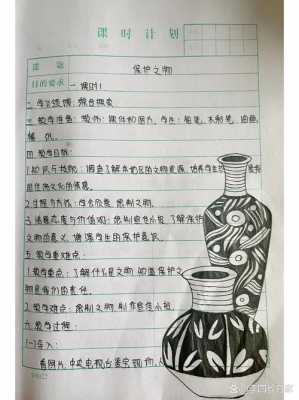 课时计划
课题 保护文物
目的要求 一.课时:1
二.学习领域:综合探索
三.教学准备:教师:课件和图片。学生:铅笔、水彩笔、油画
棒 纸。
四.教学目标:
1.知识与技能:调查了解本地区的文物资源,培养学生
民族文化的情感。
2.过程与方法:学会欣赏、绘制文物。
3.情感态度与价值观:绘制宣传小报,了解保护
文物的意义,增强学生的保护意识。
五.教学重难点:
1.教学重点:了解什么是文物,知道保护文
物是我们的责任。
2.教学难点:绘制文物,制作宣传小报
六.教学过程:
(一)导入:
看图片:中央电视台